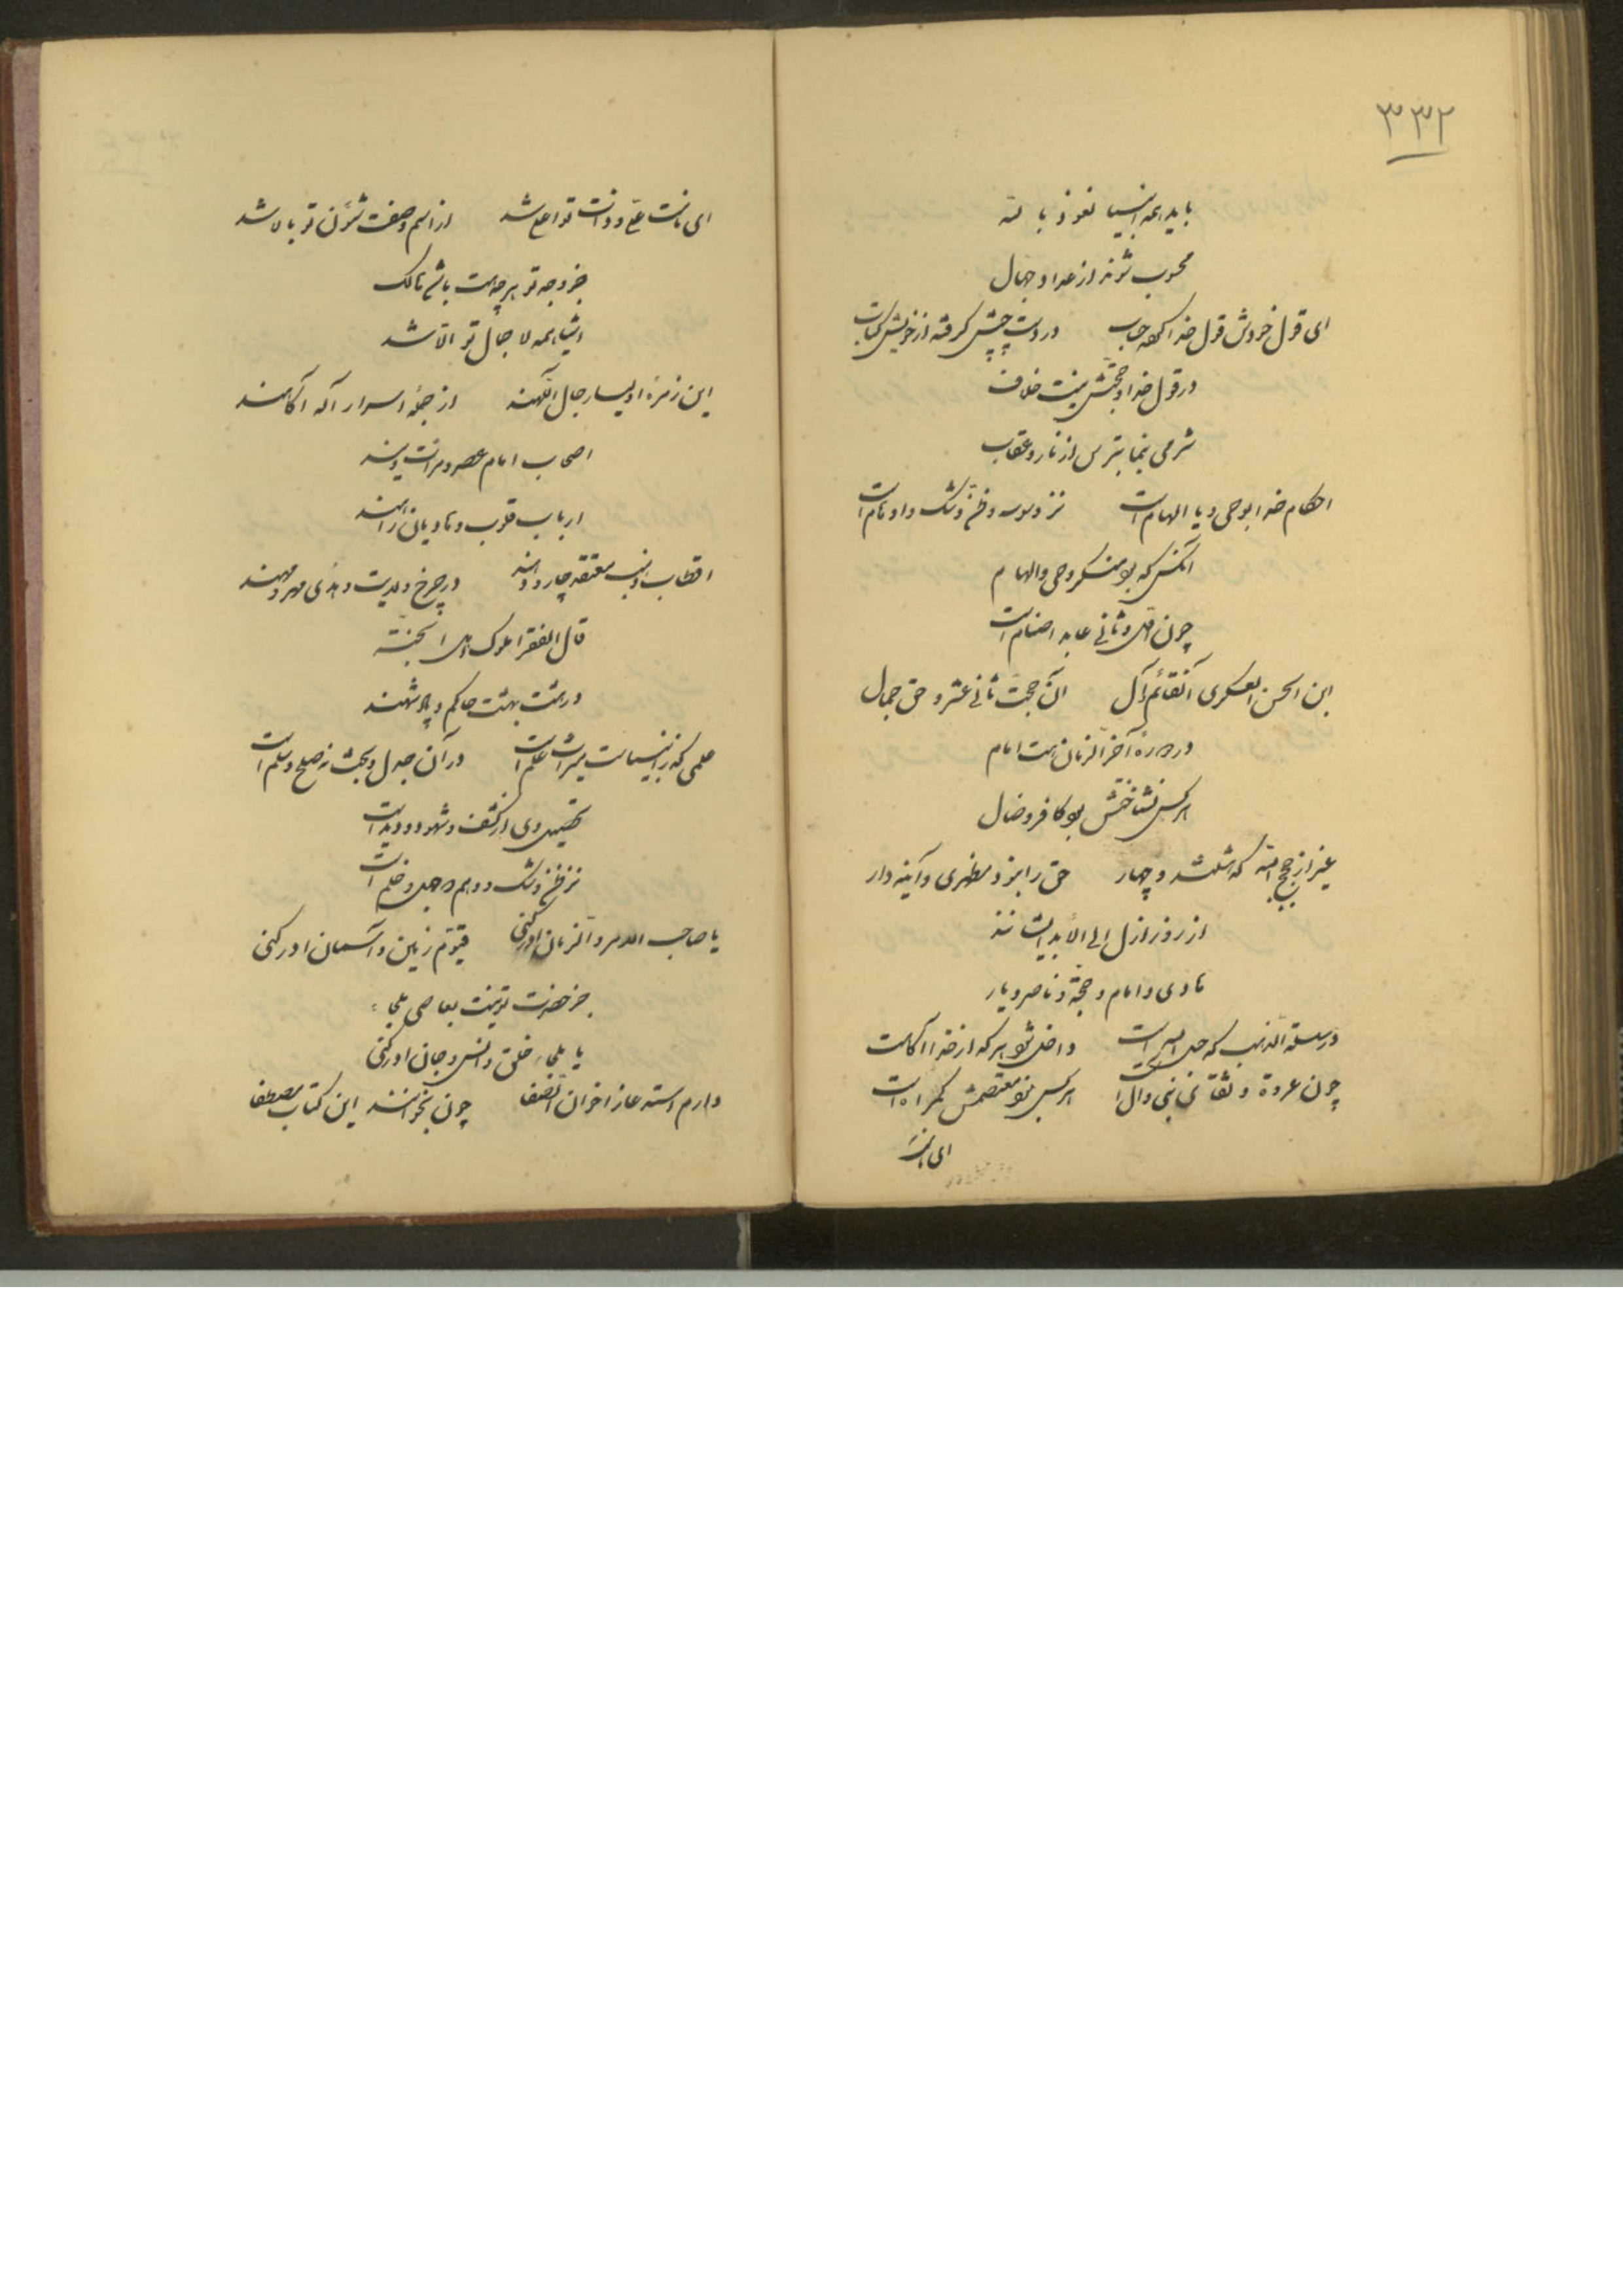 ۳۳۲
باید همه انبیا نعوذ بالله
محسوب شوند از عدا و جهال
ای قول خودش قول خدا کرده حساب در دست چپش گرفته از خویش کتاب
در قول خدا و حجتش نیست خلاف
شرمی بنما بترس از نار و عقاب
احکام خدا بوحی و یا الهام است نز وسوسه و ظن و شک و اوهام است
آنکس که بود منکر وحی و الهام
چون اول و ثانی عابد اصنام است
ابن الحسن العسکری آن قائم آل آن حجت ثانی عشر و حق جمال
در دوره آخر الزمان هست امام
هر کس نشناختش بود کافر و ضال
غیر از حجج الله که هشتند و چهار حق را نبود مظهری و آینه دار
از روز ازل الی الابد ایشانند
هادی و امام و حجة و ناصر و یار
در سلسلة الذهب که حبل الله است داخل شود هر که از خدا آگاهست
چون عروة وثقای نبی و آل است هر کس نبود معتصمش گمراه است
ای ذات
ای ذات علی و ذات تو اعلی شد از اسم و صفت شئون تو بالا شد
جز وجه تو هر چه هست باشد هالک
اشیا همه لا جمال تو الا شد
این زمره اولیا رجال اللهند از جمله اسرار اله آگاهند
اصحاب امام عصر و مرآت ویند
ارباب قلوب و هادیان راهند
اقطاب و نجیب معتقد چار ودند در چرخ ولایت و هدی مهر و مهند
قال الفقرا ملوک اهل الجنة
در هشت بهشت حاکم و پادشهند
علمی که ز انبیاست میراث علم است در آن جدل و بحث نه صلح و سلم است
تحصیل وی از کشف و شهود و دید است
نز ظن و شک و وهم و جهل و ظلم است
یا صاحب الامر و الزمان ادرکنی قیوم زمین و آسمان ادرکنی
جز حضرت تو نیست بعاصی ملجاء
یا ملجاء خلق و انس و جان ادرکنی
دارم استدعا ز اخوان الصفا چون بخوانند این کتاب مصطفا